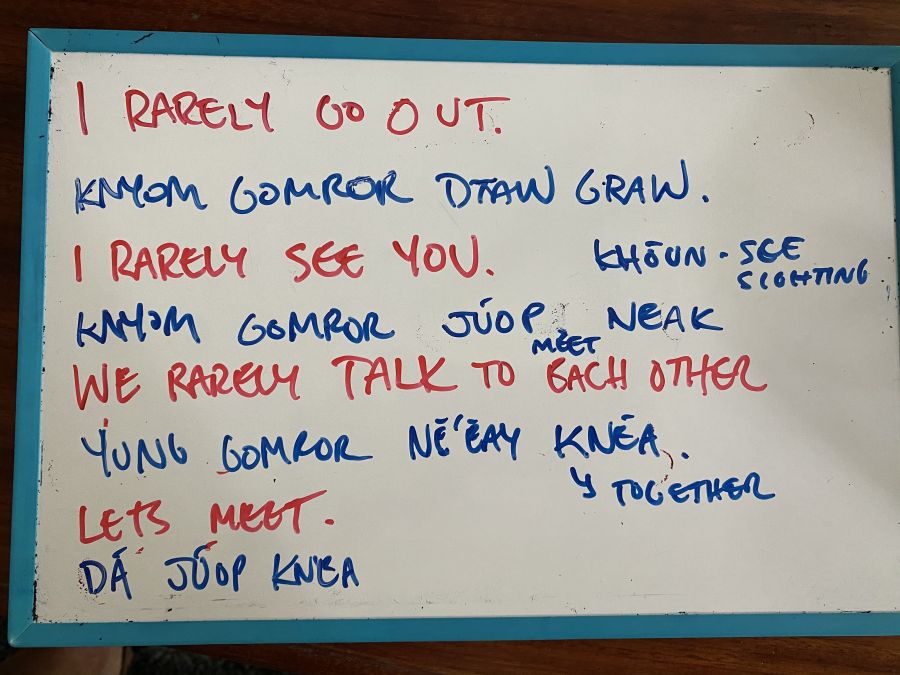 I RARELY GO OUT.
KNYOM GOMROR DTAW GRAW.
I RARELY SEE YOU.
KHŌUN - SEE
SIGHTING
KNYOM GOMROR JÚOP NEAK
MEET
WE RARELY TALK TO EACH OTHER
YUNG GOMROR NĒ'ĒAY KNĒA.
↳ TOGETHER
LETS MEET.
DÁ JÚOP KNĒA